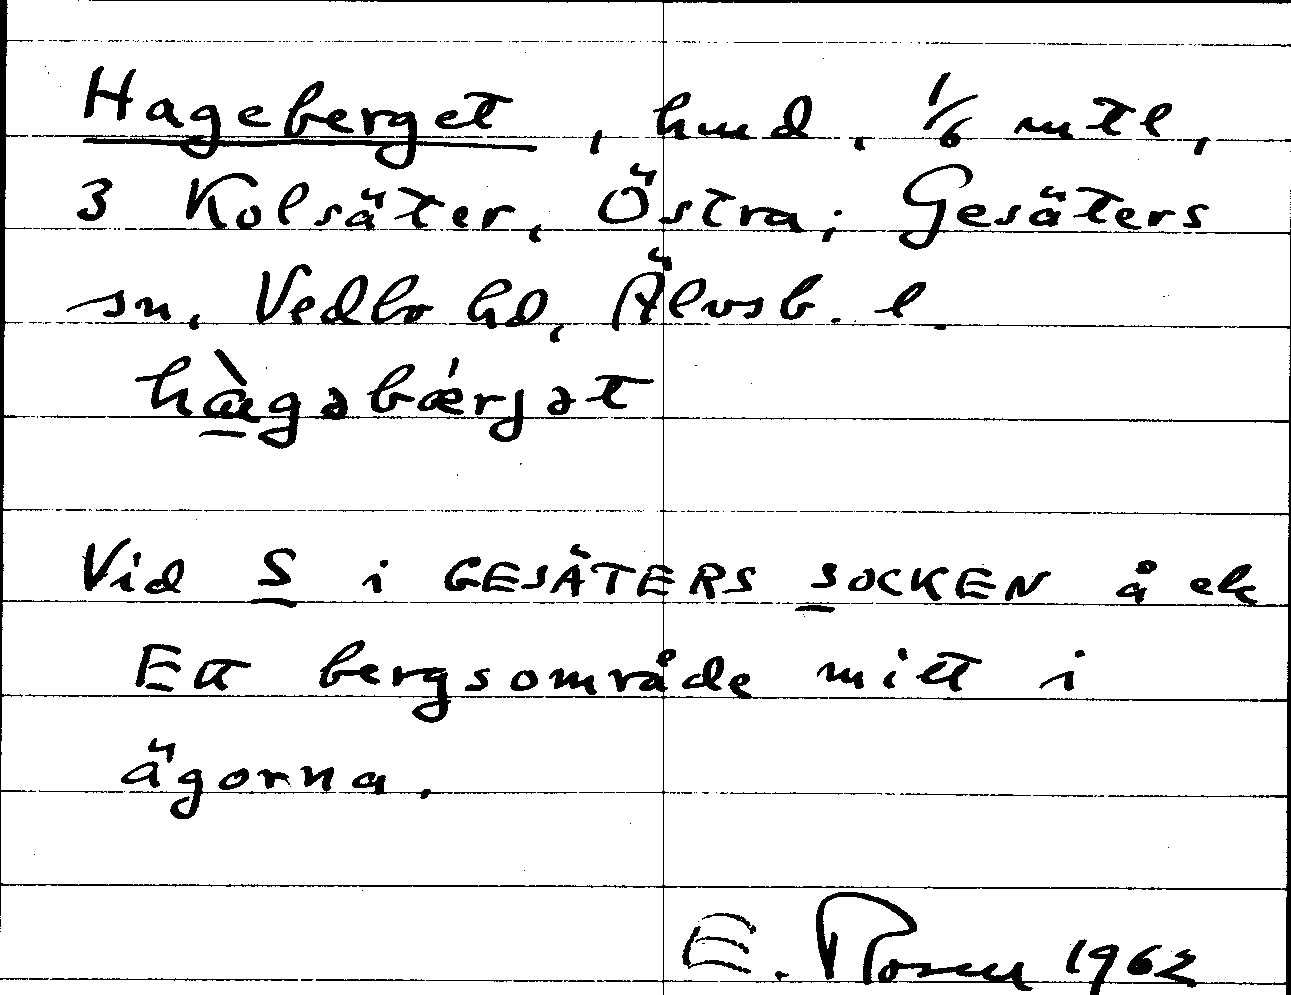 Hageberget, hmd. 1/6 mtl,
3 Kolsäter, Östra; Gesäters
sn, Vedbo hd, Älvsb. l.
hàgəbǽrjət
Vid S i GESÄTERS SOCKEN å ek
Ett bergsområde mitt i
ägorna.
E. Rosen 1962